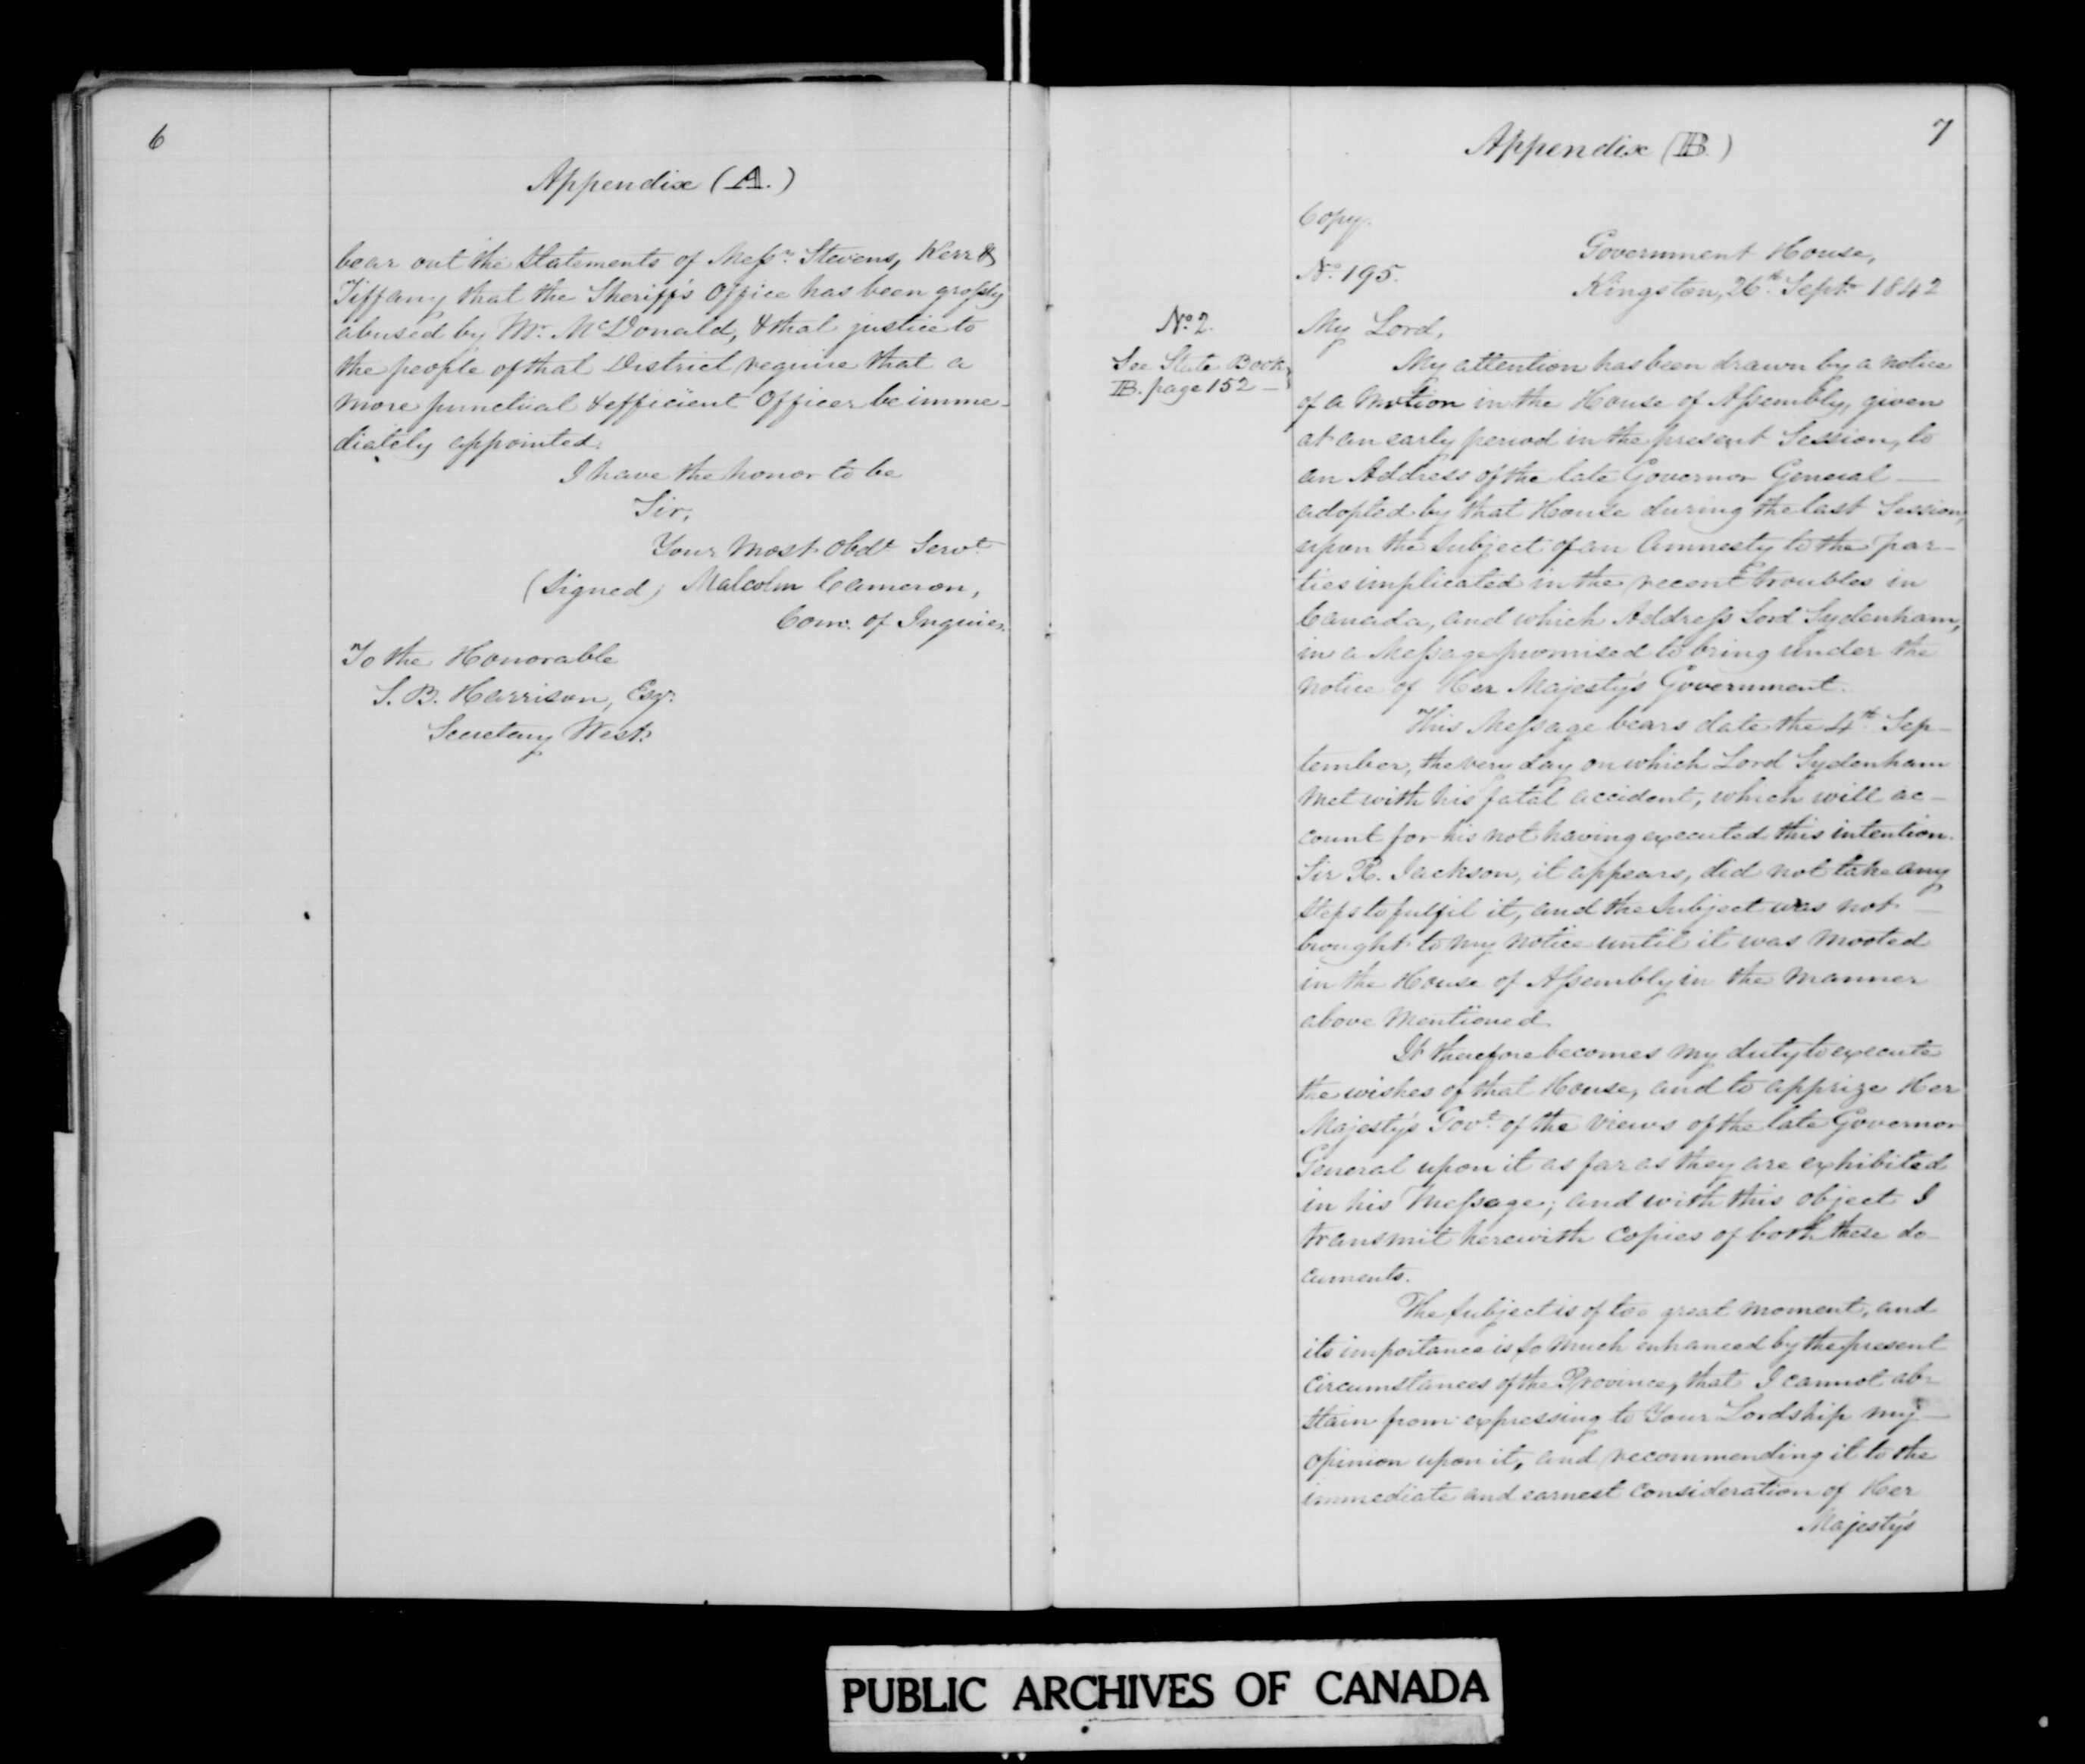 6
Appendix (A.)
bear out the Statements of Messrs. Stevens, Kerr &
Tiffany that the Sheriff's Office has been grossly
abused by Mr. McDonald, & that justice to
the people of that District require that a
more punctual & efficient Officer be imme-
diately appointed.
I have the honor to be
Sir,
Your Most Obdt Servt
(Signed) Malcolm Cameron,
Com. of Inquiry.
To the Honorable
S. B. Harrison, Esqr.
Secretary West.
7
Appendix (B.)
Copy.
Government House,
No. 195.
Kingston, 26th Septr 1842
No. 2.
See State Book
B. page 152 —
My Lord,
My attention has been drawn by a notice
of a Motion in the House of Assembly, given
at an early period in the present Session, to
an Address of the late Governor General —
adopted by that House during the last Session,
upon the Subject of an Amnesty to the par-
ties implicated in the recent troubles in
Canada, and which Address Lord Sydenham,
in a Message promised to bring under the
notice of Her Majesty's Government.
This Message bears date the 4th Sep-
tember, the very day on which Lord Sydenham
met with his fatal accident, which will ac-
count for his not having executed this intention.
Sir R. Jackson, it appears, did not take any
steps to fulfil it, and the Subject was not —
brought to my notice until it was mooted
in the House of Assembly in the manner
above mentioned.
It therefore becomes my duty to execute
the wishes of that House, and to apprize Her
Majesty's Govt. of the views of the late Governor
General upon it as far as they are exhibited
in his Message; and with this object I
transmit herewith Copies of both these do-
cuments.
The Subject is of too great moment, and
its importance is so much enhanced by the present
Circumstances of the Province, that I cannot ab-
stain from expressing to Your Lordship my —
opinion upon it, and recommending it to the
immediate and earnest Consideration of Her
Majesty's
PUBLIC ARCHIVES OF CANADA